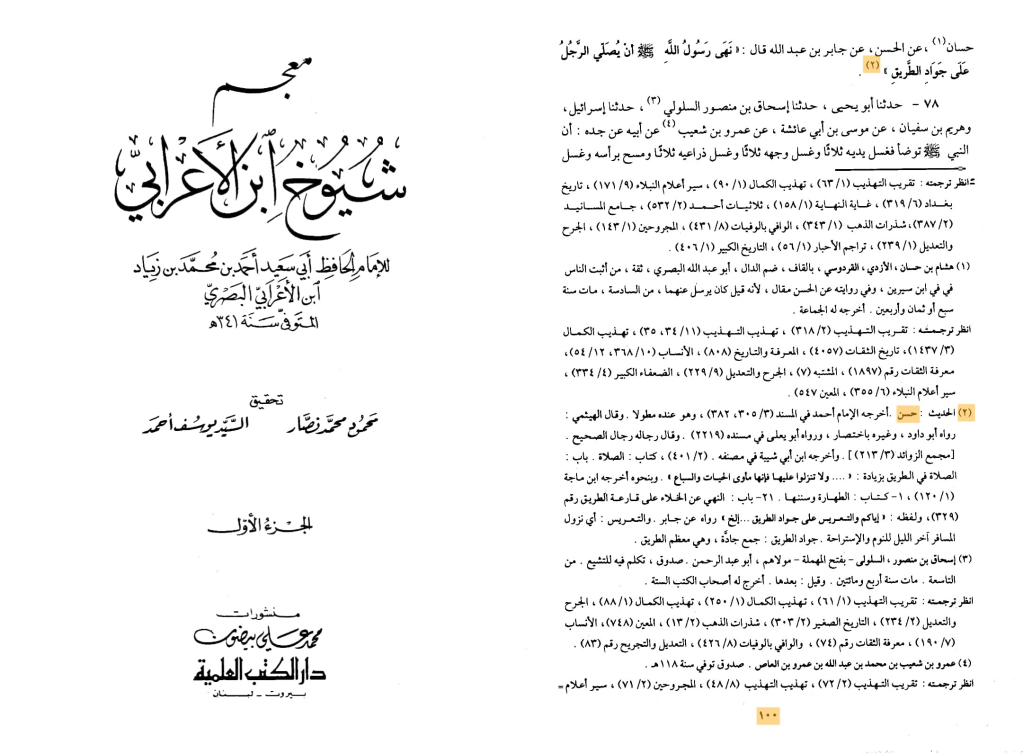 حسان(١) ، عن الحسن، عن جابر بن عبد الله قال : « نَهَى رَسُولُ اللَّهِ ﷺ أَنْ يُصَلِّي الرَّجُلُ
عَلَى جَوَادِ الطَّرِيقِ »(٢) .
٧٨ - حدثنا أبو يحيى ، حدثنا إسحاق بن منصور السلولي(٣) ، حدثنا إسرائيل،
وهريم بن سفيان ، عن موسى بن أبي عائشة ، عن عمرو بن شعيب(٤) عن أبيه عن جده : أن
النبي ﷺ توضأ فغسل يديه ثلاثًا وغسل وجهه ثلاثًا وغسل ذراعيه ثلاثًا ومسح برأسه وغسل
= انظر ترجمته : تقريب التهذيب (٦٣/١) ، تهذيب الكمال (٩٠/١) ، سير أعلام النبلاء (١٧١/٩) ، تاريخ
بغداد (٣١٩/٦) ، غاية النهاية (١٥٨/١) ، ثلاثيات أحمد (٥٣٢/٢) ، جامع المسانيد
(٣٨٧/٢)، شذرات الذهب (٣٤٣/١) ، الوافي بالوفيات (٤٣١/٨) ، المجروحين (١٤٣/١) ، الجرح
والتعديل (٢٣٩/١) ، تراجم الأحبار (٥٦/١) ، التاريخ الكبير (٤٠٦/١) .
(١) هشام بن حسان ، الأزدي ، القردوسي ، بالقاف ، ضم الدال ، أبو عبد الله البصري ، ثقة ، من أثبت الناس
في في ابن سيرين ، وفي روايته عن الحسن مقال ، لأنه قيل كان يرسل عنهما ، من السادسة ، مات سنة
سبع أو ثمان وأربعين . أخرجه له الجماعة .
انظر ترجمته : تقريب التهذيب (٣١٨/٢) ، تهذيب التهذيب (٣٤/١١، ٣٥) ، تهذيب الكمال
(١٤٣٧/٣)، تاريخ الثقات (٤٠٥٧) ، المعرفة والتاريخ (٨٠٨) ، الأنساب (٣٦٨/١٠، ٥٤/١٢)،
معرفة الثقات رقم (١٨٩٧) ، المشتبه (٧) ، الجرح والتعديل (٢٢٩/٩) ، الضعفاء الكبير (٣٣٤/٤) ،
سير أعلام النبلاء (٣٥٥/٦) ، المعين ٥٤٧) .
(٢) الحديث : حسن .أخرجه الإمام أحمد في المسند (٣٠٥/٣، ٣٨٢) ، وهو عنده مطولا . وقال الهيثمي :
رواه أبو داود ، وغيره باختصار ، ورواه أبو يعلى في مسنده (٢٢١٩) . وقال رجاله رجال الصحيح .
[مجمع الزوائد (٢١٣/٣)] . وأخرجه ابن أبي شيبة في مصنفه . (٤٠١/٢) ، كتاب : الصلاة . باب :
الصلاة في الطريق بزيادة : « .... ولا تنزلوا عليها فإنها مأوى الحيات والسباع » . وبنحوه أخرجه ابن ماجة
(١٢٠/١) ، ١- كتاب : الطهارة وسننها . ٢١- باب : النهي عن الخلاء على قارعة الطريق رقم
(٣٢٩)، ولفظه : « إياكم والتعريس على جواد الطريق ...إلخ » رواه عن جابر . والتعريس : أي نزول
المسافر آخر الليل للنوم والإستراحة . جواد الطريق : جمع جادَّة ، وهي معظم الطريق .
(٣) إسحاق بن منصور ، السلولى - بفتح المهملة - مولاهم ، أبو عبد الرحمن . صدوق ، تكلم فيه للتشيع . من
التاسعة . مات سنة أربع ومائتين . وقيل : بعدها . أخرج له أصحاب الكتب الستة .
انظر ترجمته : تقريب التهذيب (٦١/١) ، تهذيب الكمال (٢٥٠/١) ، تهذيب الكمال (٨٨/١) ، الجرح
والتعديل (٢٣٤/٢) ، التاريخ الصغير (٣٠٣/٢) ، شذرات الذهب (١٣/٢) ، المعين (٧٤٨)، الأنساب
(١٩٠/٧) ، معرفة الثقات رقم (٧٤) ، والوافي بالوفيات (٤٢٦/٨) ، التعديل والتجريح رقم (٨٣) .
(٤) عمرو بن شعيب بن محمد بن عبد الله بن عمرو بن العاص . صدوق توفي سنة ١١٨هـ .
انظر ترجمته : تقريب التهذيب (٧٢/٢) ، تهذيب التهذيب (٤٨/٨) ، المجروحين (٧١/٢) ، سير أعلام =
١٠٠
معجم
شُيُوخِ ابْنِ الأَعْرَابِيِّ
للإمام الحافظ أبي سعيد أحمد بن محمد بن زياد
ابن الأعرابي البصري
المتوفى سنة ٣٤١هـ
تحقيق
محمود محمد نصار السيد يوسف أحمد
الجزء الأول
منشورات
محمد علي بيضون
دار الكتب العلمية
بيروت - لبنان